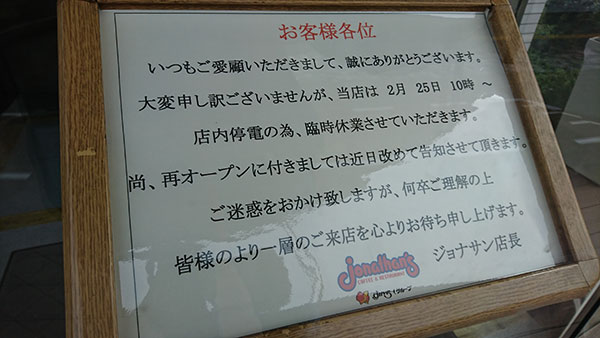 お客様各位
いつもご愛顧いただきまして、誠にありがとうございます。
大変申し訳ございませんが、当店は 2月 25日 10時 ～
店内停電の為、臨時休業させていただきます。
尚、再オープンに付きましては近日改めて告知させて頂きます。
ご迷惑をおかけ致しますが、何卒ご理解の上
皆様のより一層のご来店を心よりお待ち申し上げます。
jonathan's
COFFEE & RESTAURANT
ジョナサン店長